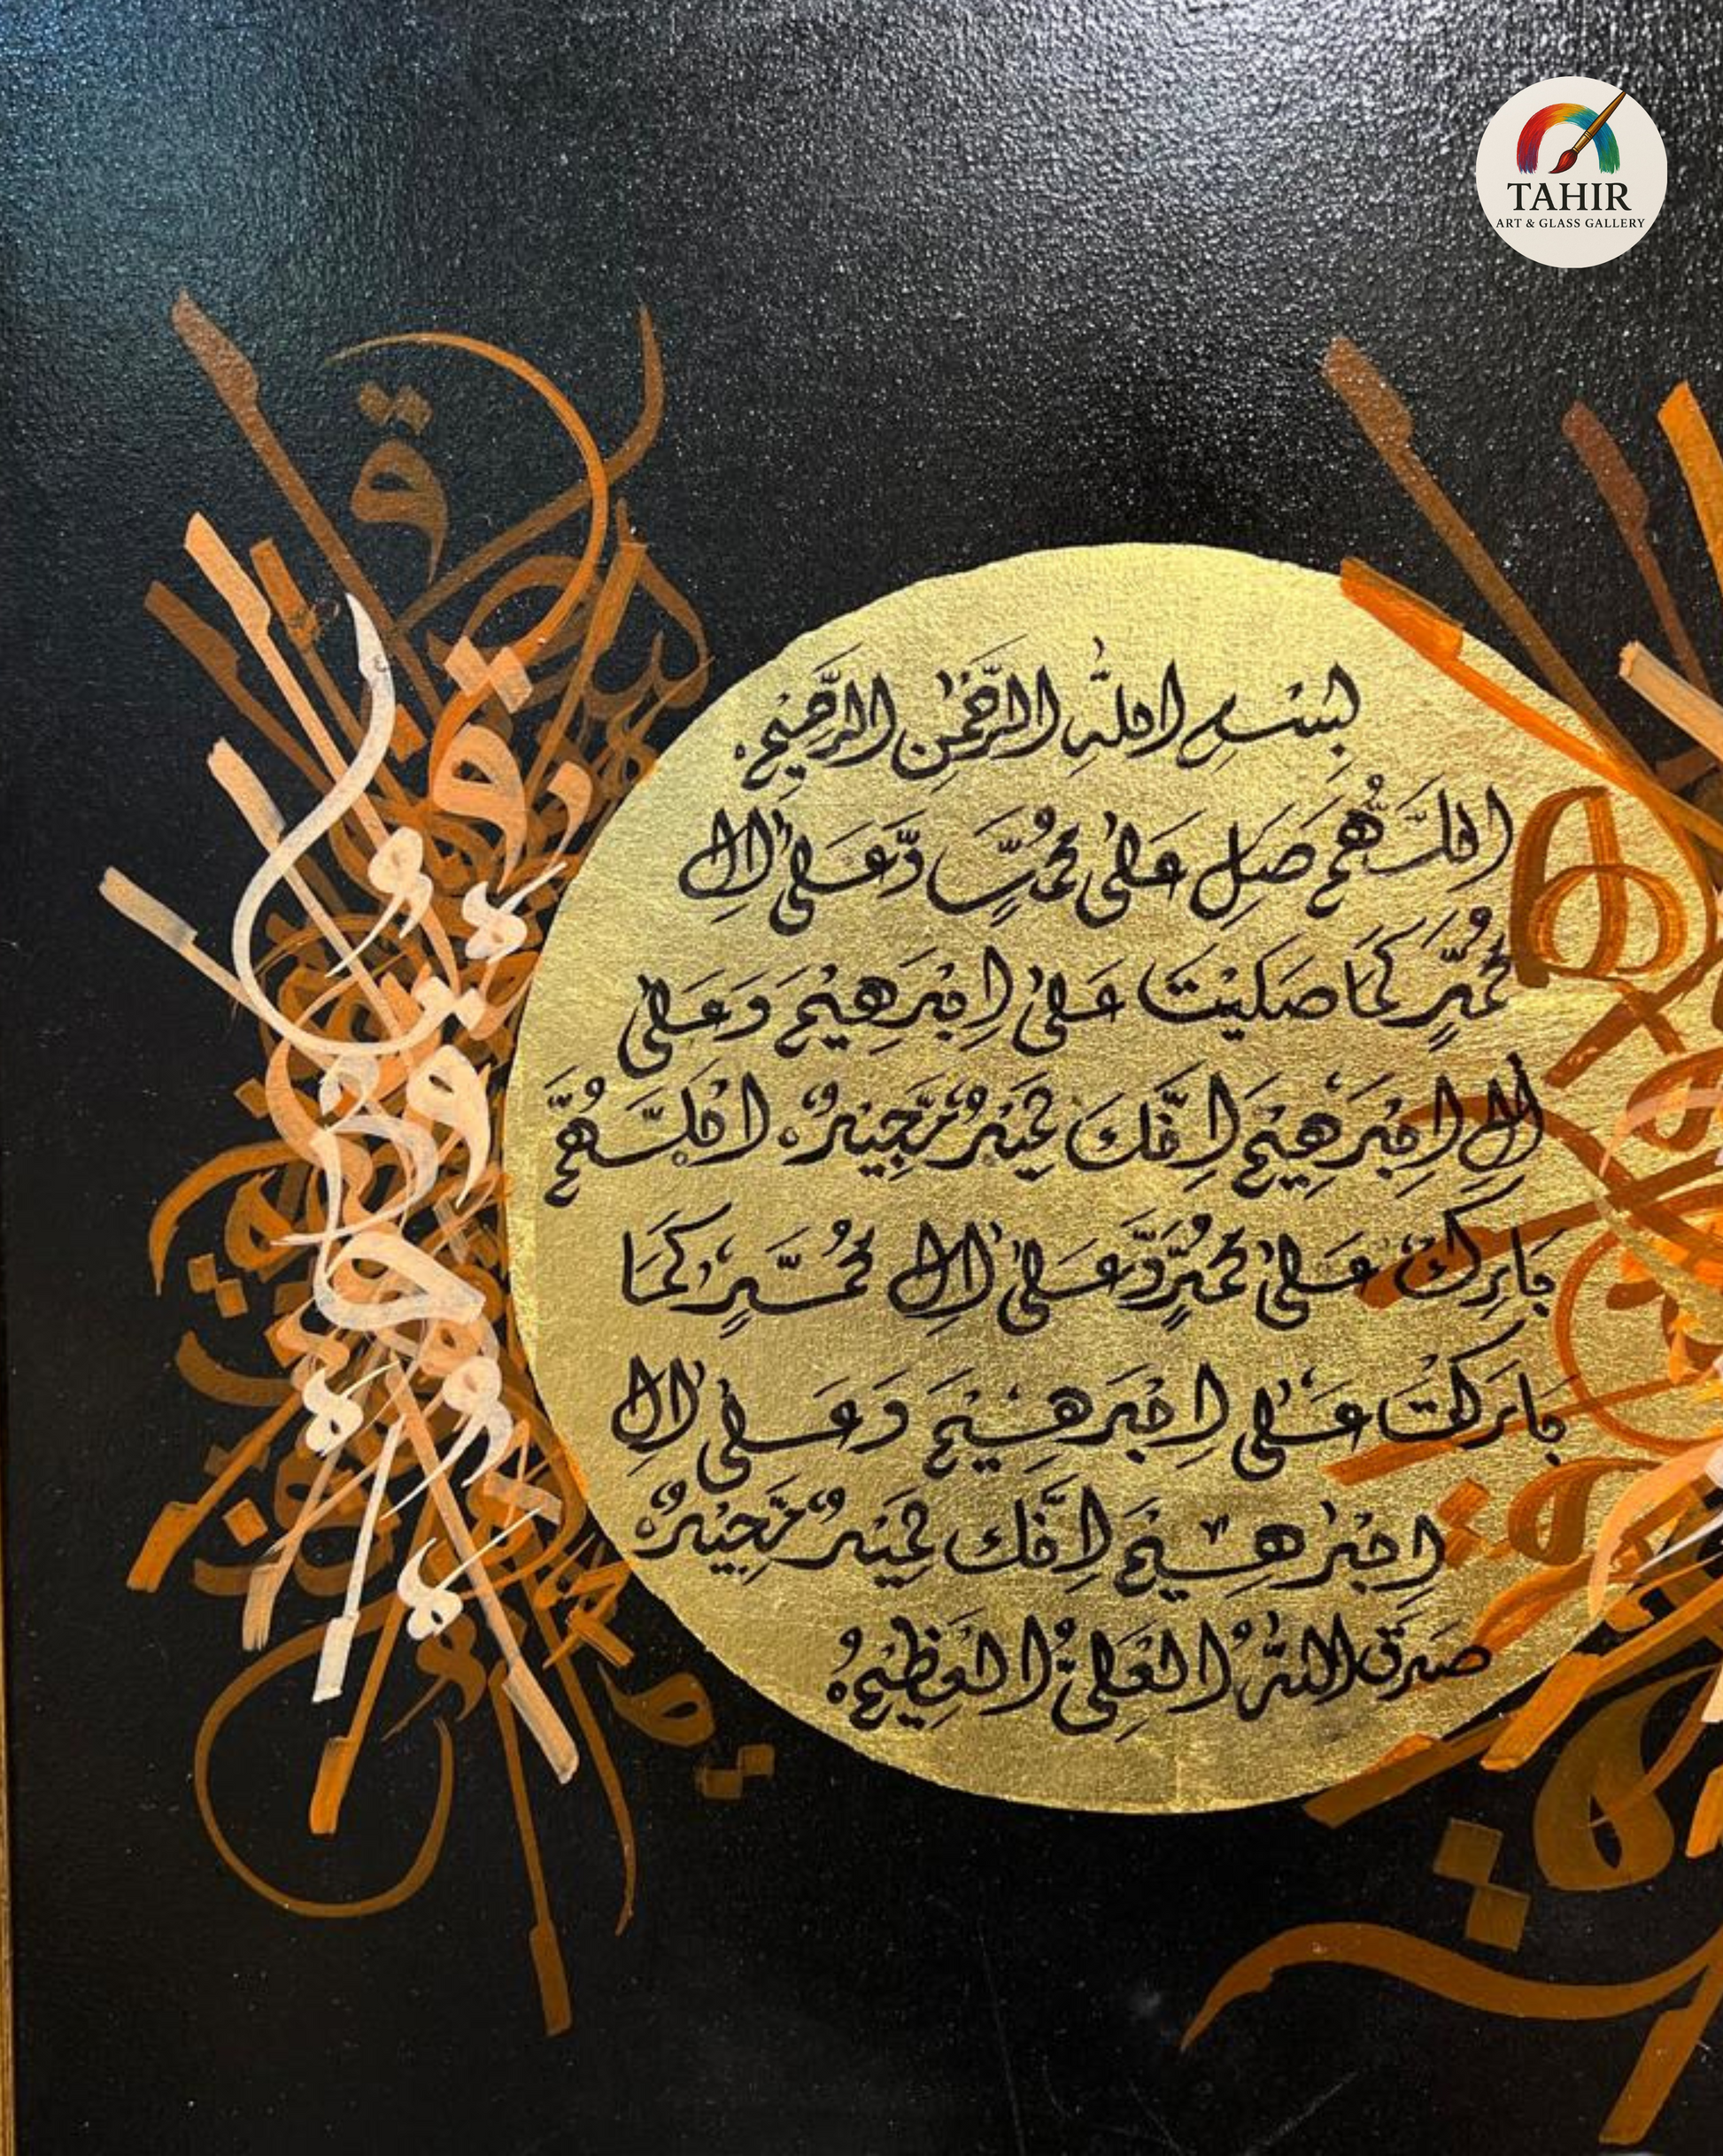 TAHIR
ART & GLASS GALLERY
بِسْمِ اللهِ الرَّحْمٰنِ الرَّحِيْمِ
اَللّٰهُمَّ صَلِّ عَلٰى مُحَمَّدٍ وَّعَلٰى اٰلِ
مُحَمَّدٍ كَمَا صَلَّيْتَ عَلٰى اِبْرٰهِيْمَ وَعَلٰى
اٰلِ اِبْرٰهِيْمَ اِنَّكَ حَمِيْدٌ مَّجِيْدٌ اَللّٰهُمَّ
بَارِكْ عَلٰى مُحَمَّدٍ وَّعَلٰى اٰلِ مُحَمَّدٍ كَمَا
بَارَكْتَ عَلٰى اِبْرٰهِيْمَ وَعَلٰى اٰلِ
اِبْرٰهِيْمَ اِنَّكَ حَمِيْدٌ مَّجِيْدٌ
صَدَقَ اللهُ الْعَلِيُّ الْعَظِيْمُ